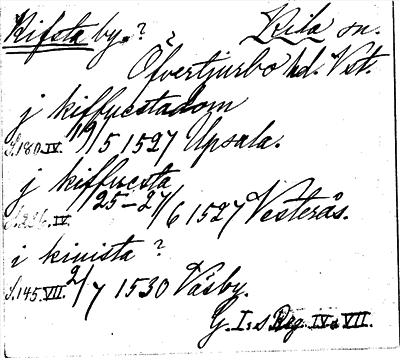 Kifsta by. ? ? Kila sn.
Öfvertjurbo hd. Vst.
j kiffuestadom
S. 180. IV. 19/5 1527 Upsala.
j kiffuesta
S. 226. IV. 25-27/6 1527 Vesterås.
i kinista ?
S. 145. VII. 2/7 1530 Väsby.
G. I:s Reg. IV o VII.